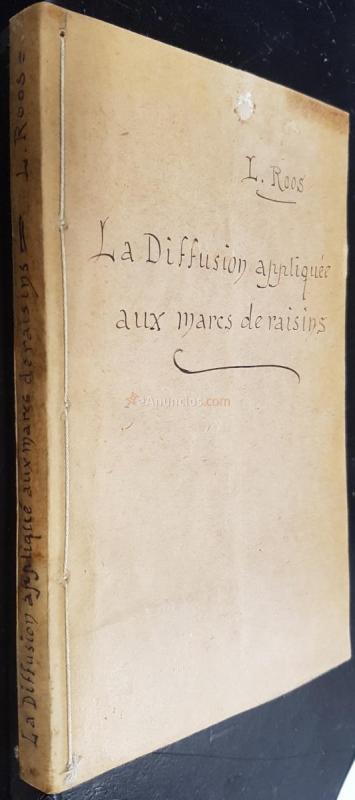 L. Roos
La Diffusion appliquée
aux marcs de raisins
La Diffusion appliqué aux marcs de raisins = L. Roos =
eAnuncios.com